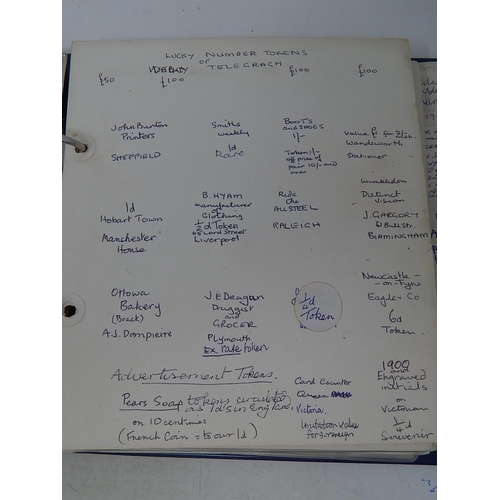 LUCKY NUMBER TOKENS
OF
WEEKLY TELEGRAGH
£50 £100 £100 £100
John Burton
Printers
SHEFFIELD
Smiths
weekly
1d
Rare
BOOTS
and SHOES
1/-
Token 1/-
off price of
pair 10/- and
over
value for
Wandsworth
Stationer
Wimbledon
1d
Hobart Town
Manchester
House
B. HYAM
manufacturer
of
Clothing
1/2d Token
65 Lord Street
Liverpool
Ride
the
ALLSTEEL
RALEIGH
Distinct
vision
J. GARGORY
Bull St.
BIRMINGHAM
Ottowa
Bakery
(Back)
A.J. Dompierre
J.E Deagan
Druggist
and
GROCER
Plymouth
Ex Rare token
1/4d
Token
Newcastle
-on-Tyne
Eagle & Co
6d
Token
Advertisement Tokens.
Pears Soap tokens circulated
as 1ds in England,
on 10 centimes
(French Coin = to our 1d)
Card Counter
Queen
Victoria.
Imitation value
for Sovereign
1900
and
Engraved
initials
on
Victorian
1/4d
Souvenir